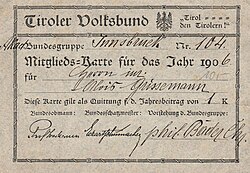 Tiroler Volksbund Tirol den Tirolern!
Bundesgruppe Innsbruck Nr. 104
Mitglieds-Karte für das Jahr 1906
für Herrn
Alois
Diese Karte gilt als Quittung f. d. Jahresbeitrag von 1 K
Bundesobmann: Bundesschatzmeister: Vorstehung d. Bundesgruppe: